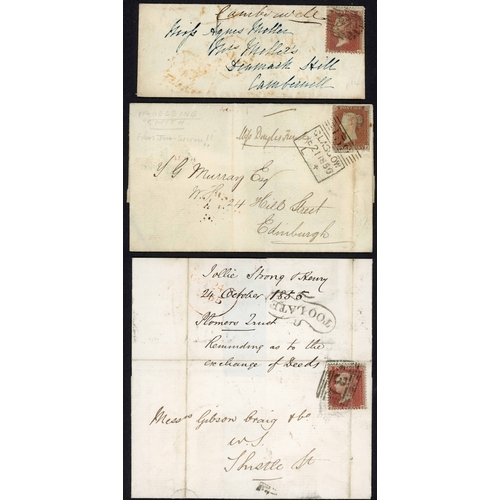 Camberwell
Miss Agnes Moller
Mrs Moller's
Denmark Hill
Camberwell
T G Murray Esq
W.S.
24 Hill Street
Edinburgh
GLASGOW
Jollie Strong & Henry
24 October 1855
TOO LATE
Stomers Trust
Reminding as to the
exchange of Deeds
Messrs Gibson Craig & Co
W.S.
Thistle St